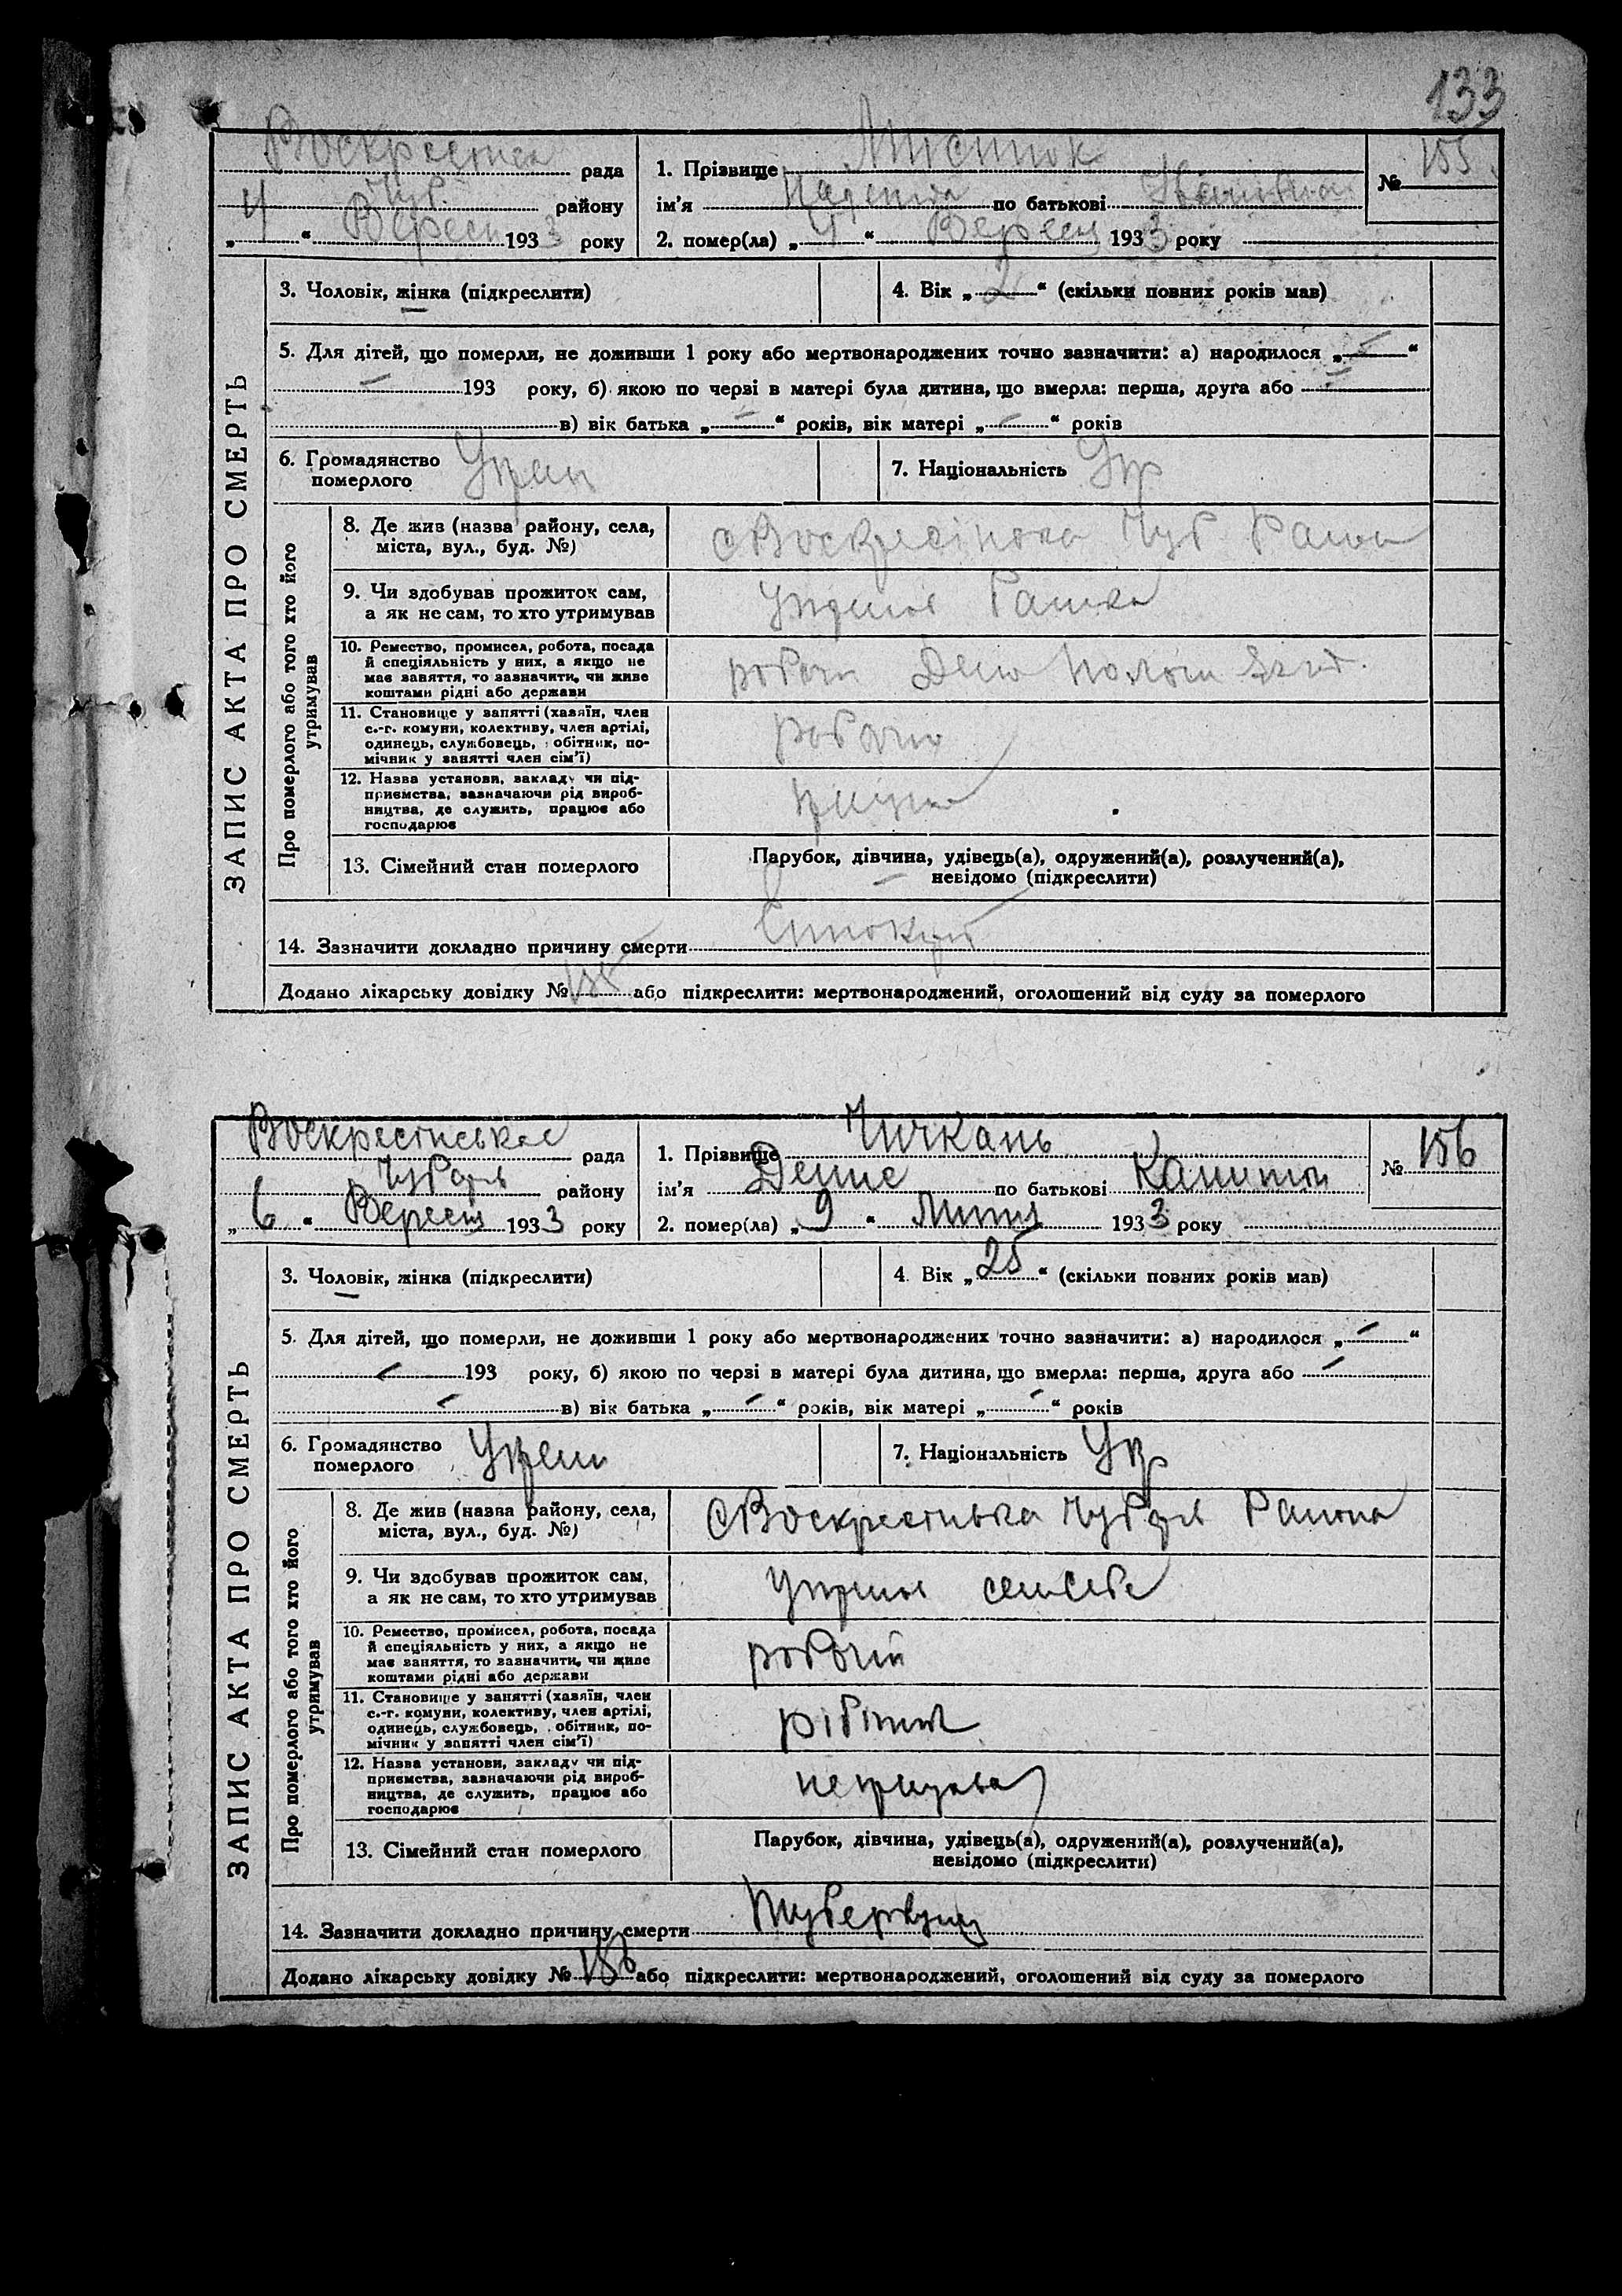 133
Воскресінськ рада 1. Прізвище № 155
Чуб. району ім'я по батькові Іванівна
„ 4 “ Вересн 1933 року 2. помер(ла) „ 4 “ Вересн 1933 року
ЗАПИС АКТА ПРО СМЕРТЬ
3. Чоловік, жінка (підкреслити) 4. Вік „ 2 “ (скільки повних років мав)
5. Для дітей, що померли, не доживши 1 року або мертвонароджених точно зазначити: а) народилося „ – “
– 193 року, б) якою по черзі в матері була дитина, що вмерла: перша, друга або –
в) вік батька „ – “ років, вік матері „ – “ років
6. Громадянство Украп 7. Національність Укр
померлого
Про померлого або того хто його
утримував
8. Де жив (назва району, села, с Воскресінка Чуб Район
міста, вул., буд. №)
9. Чи здобував прожиток сам,
а як не сам, то хто утримував
10. Ремество, промисел, робота, посада
й спеціяльність у них, а якщо не
має заняття, то зазначити, чи живе
коштами рідні або держави
11. Становище у занятті (хазяїн, член
с.-г. комуни, колективу, член артілі,
одинець, службовець, обітник, по-
мічник у занятті член сім'ї)
12. Назва установи, закладу чи під-
приємства, зазначаючи рід вироб-
ництва, де служить, працює або
господарює
13. Сімейний стан померлого Парубок, дівчина, удівець(а), одружений(а), розлучений(а),
невідомо (підкреслити)
14. Зазначити докладно причину смерти
Додано лікарську довідку № 155 або підкреслити: мертвонароджений, оголошений від суду за померлого
Воскресінська рада 1. Прізвище Чичкань № 156
району ім'я Денис по батькові
„ 6 “ Вересня 1933 року 2. помер(ла) „ 9 “ Липня 1933 року
ЗАПИС АКТА ПРО СМЕРТЬ
3. Чоловік, жінка (підкреслити) 4. Вік „ 25 “ (скільки повних років мав)
5. Для дітей, що померли, не доживши 1 року або мертвонароджених точно зазначити: а) народилося „ – “
– 193 року, б) якою по черзі в матері була дитина, що вмерла: перша, друга або –
– в) вік батька „ – “ років, вік матері „ – “ років
6. Громадянство 7. Національність Укр
померлого
Про померлого або того хто його
утримував
8. Де жив (назва району, села, с Воскресінька Района
міста, вул., буд. №)
9. Чи здобував прожиток сам,
а як не сам, то хто утримував
10. Ремество, промисел, робота, посада робочий
й спеціяльність у них, а якщо не
має заняття, то зазначити, чи живе
коштами рідні або держави
11. Становище у занятті (хазяїн, член робітник
с.-г. комуни, колективу, член артілі,
одинець, службовець, обітник, по-
мічник у занятті член сім'ї)
12. Назва установи, закладу чи під-
приємства, зазначаючи рід вироб-
ництва, де служить, працює або
господарює
13. Сімейний стан померлого Парубок, дівчина, удівець(а), одружений(а), розлучений(а),
невідомо (підкреслити)
14. Зазначити докладно причину смерти
Додано лікарську довідку № 156 або підкреслити: мертвонароджений, оголошений від суду за померлого